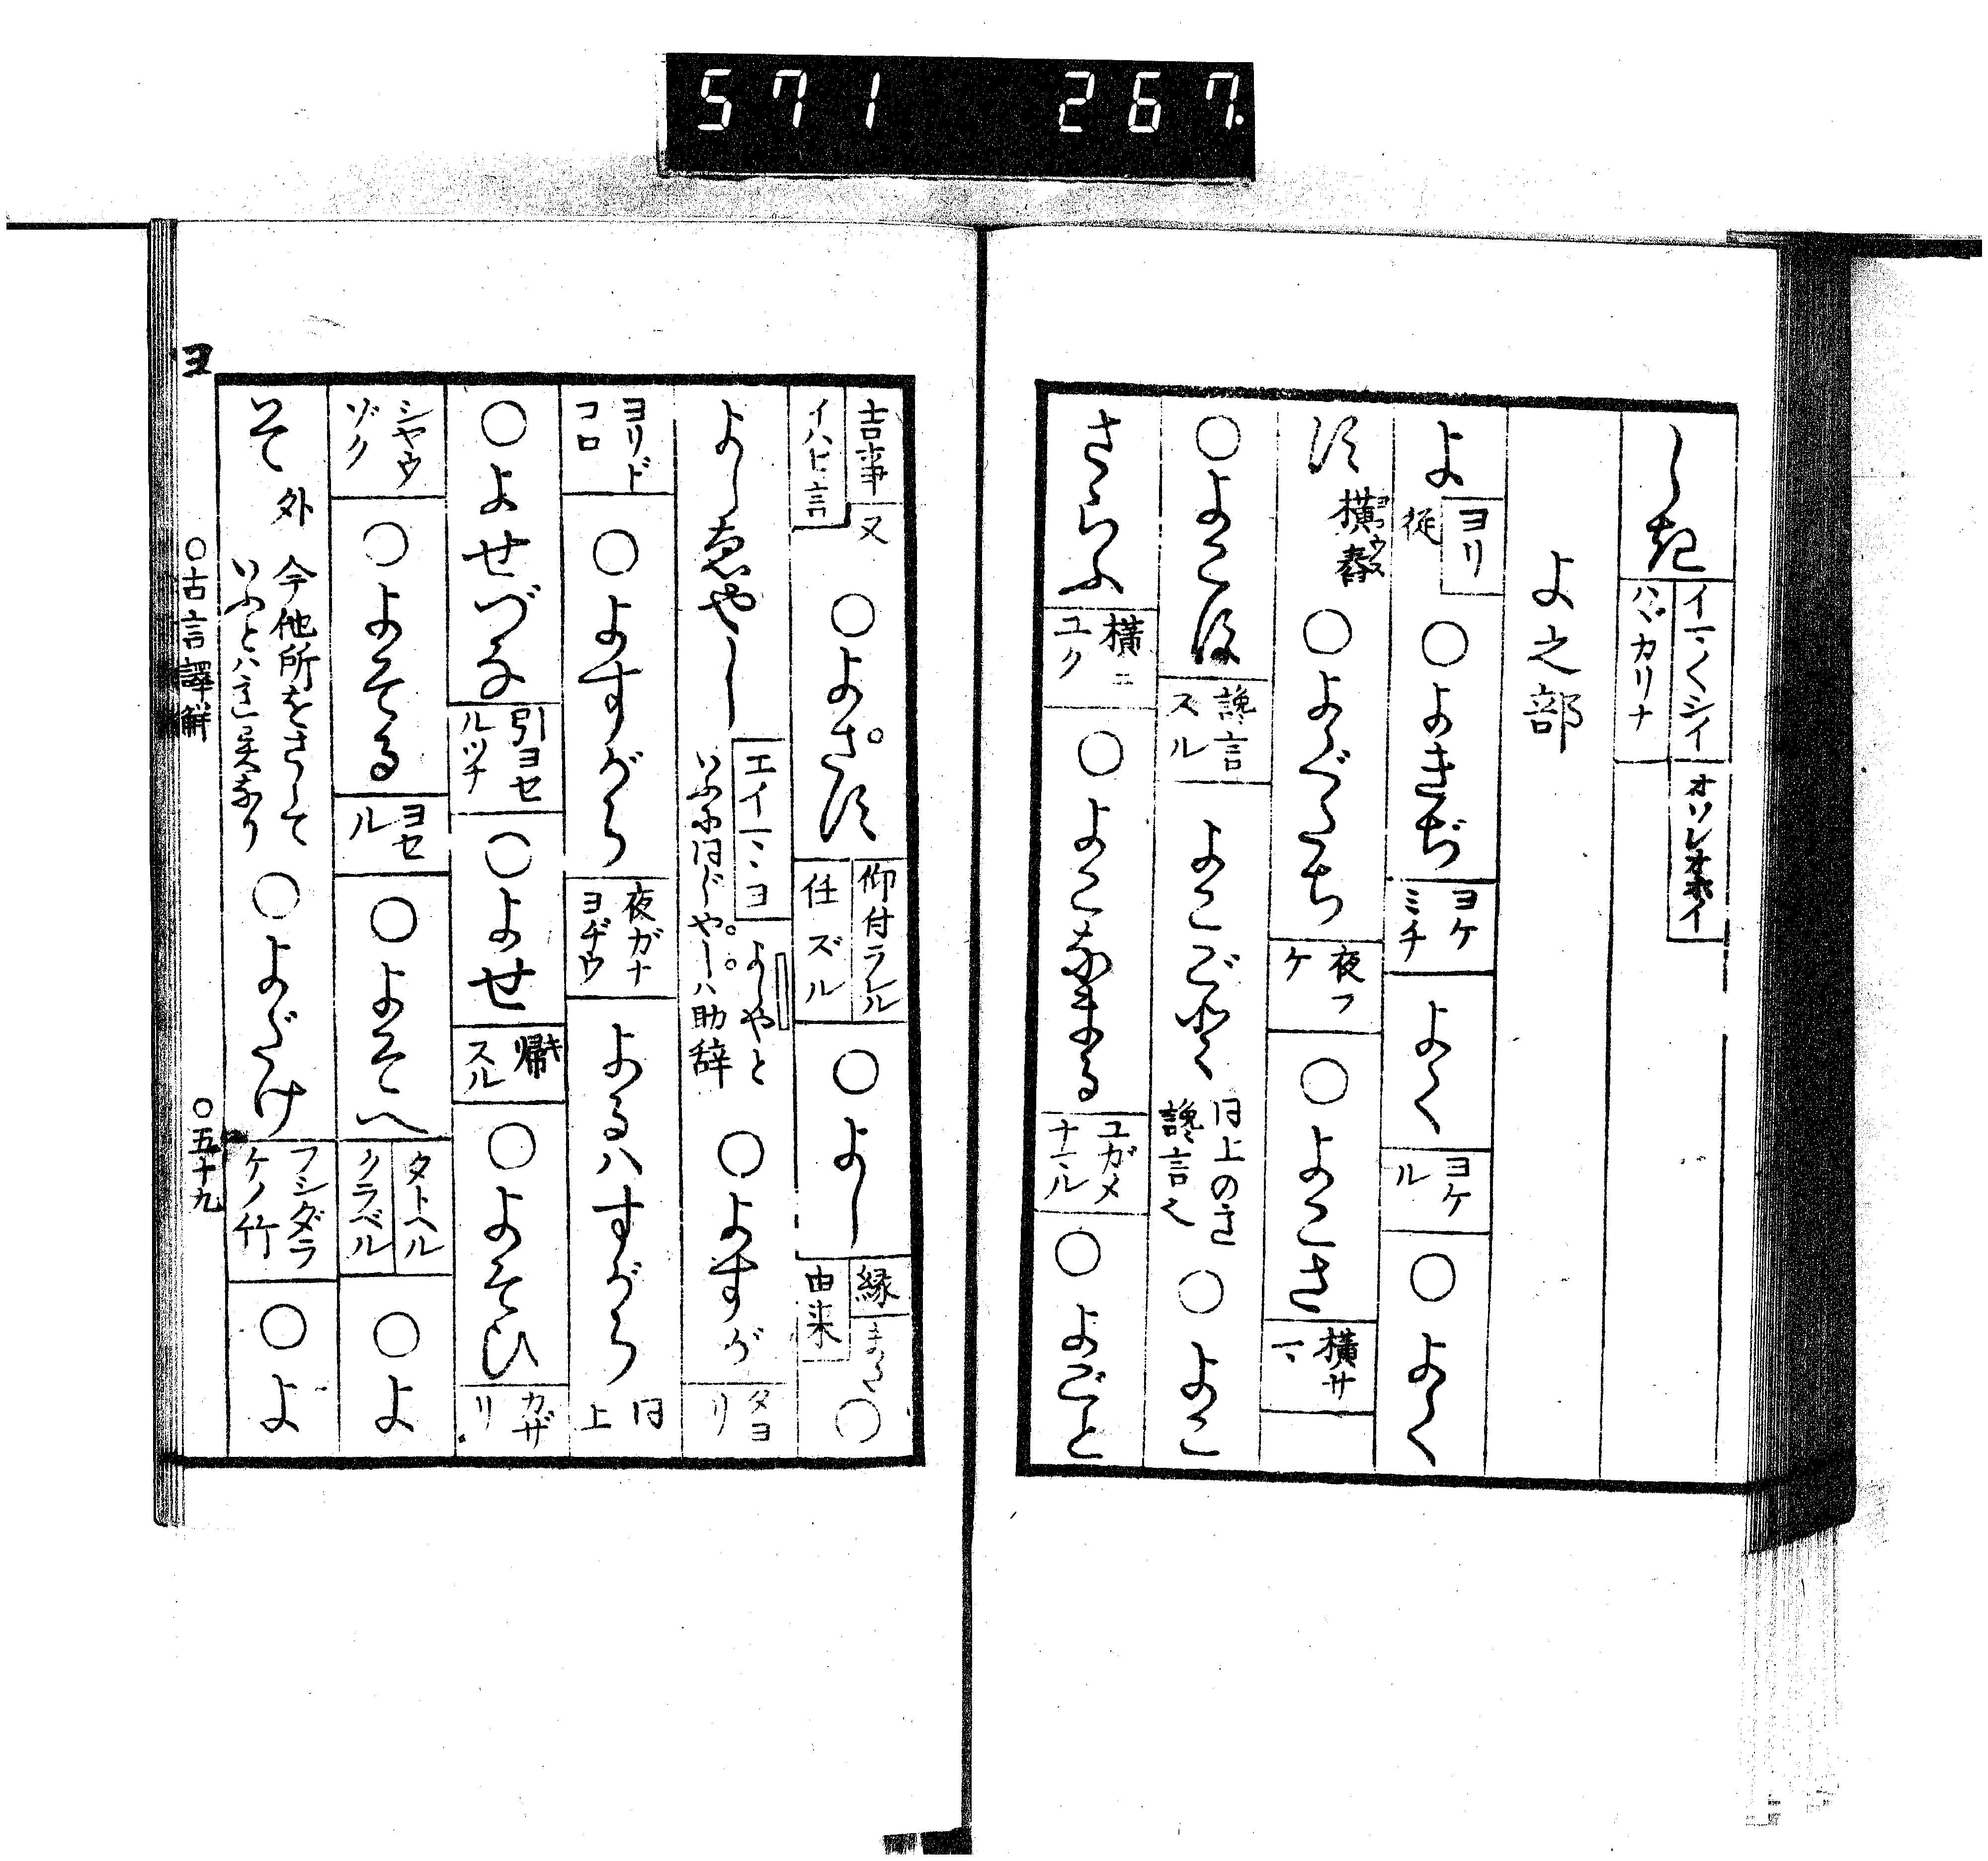 571 267.
しき イマ〳〵シイ オソレオホイ
ハヾカリナ
よ之部
よ ヨリ 従 ○よきぢ ヨケミチ よく ヨケル ○よく
す 横舂 ○よぐたち 夜フケ ○よこさ 横サマ
○よこす 讒言スル よこごと 同上のき 讒言也 ○よこ
さらふ 横ニユク ○よこなまる ユガメナマル ○よごと
吉事 又 イハヒ言 ○よさす 仰付ラルル 任ズル ○よし 縁 また 由来 ○
よしゑやし エイマヽヨ よしやと いふに同じやしハ助辞 ○よすが タヨリ
ヨリドコロ ○よすがら 夜ガナヨヂウ よるハすがら 同上
○よせづな 引ヨセルツナ ○よせ 帰スル ○よそひ カザリ
シヤウゾク ○よそる ヨセル ○よそへ タトヘル クラベル ○よ
そて 外 今他所をさして いふとハ意異なり ○よだけ フシダラケノ竹 ○よ
ヨ ○古言譯解 ○五十九